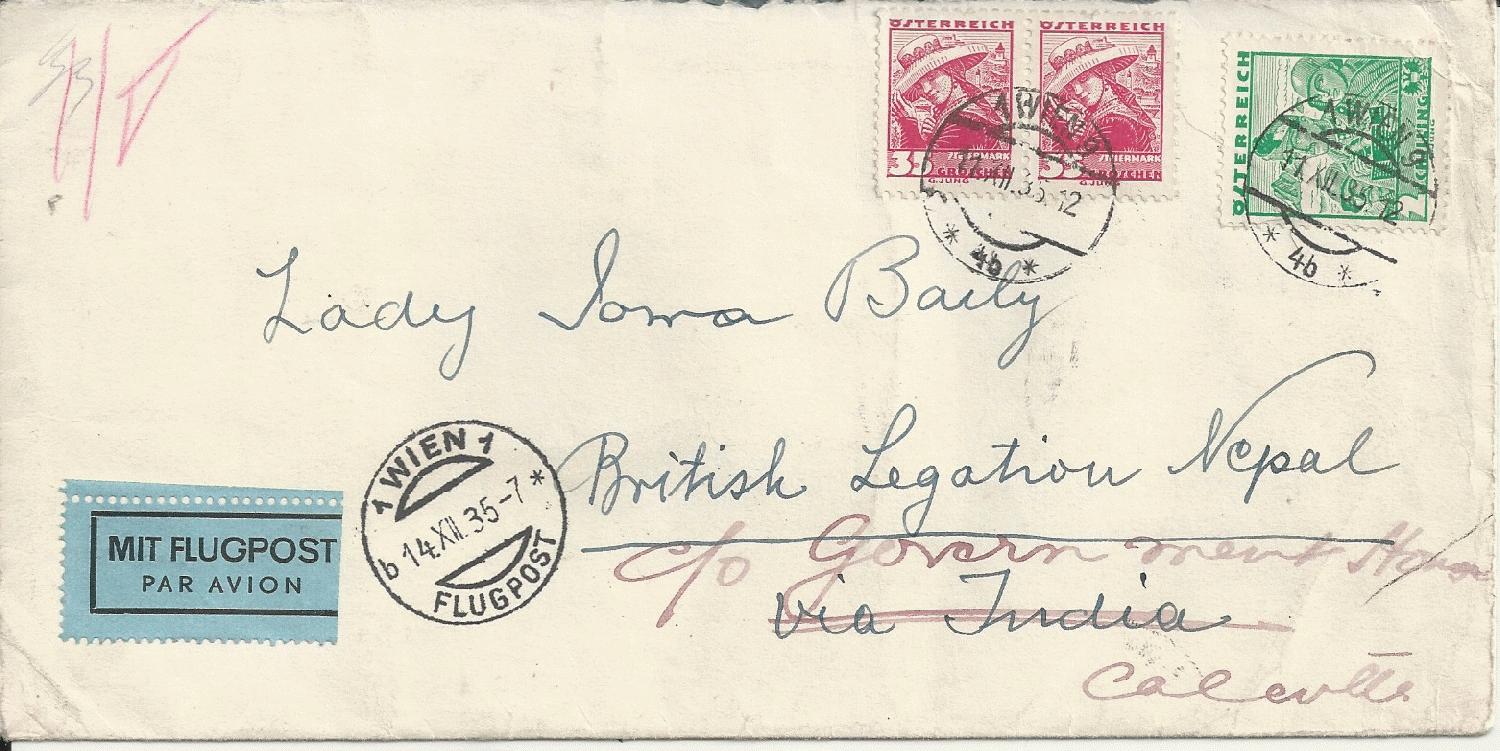 33
ÖSTERREICH
STEIERMARK
35 GROSCHEN
G. JUNG
ÖSTERREICH
STEIERMARK
35 GROSCHEN
G. JUNG
ÖSTERREICH
SCHILLING
1 WIEN 9
11.XII.35 12
* 4b *
1 WIEN 9
11.XII.35 12
* 4b *
Lady Iowa Baily
British Legation Nepal
c/o Government House
via India
Calcutta
1 WIEN 1
b 14.XII.35-7 *
FLUGPOST
MIT FLUGPOST
PAR AVION